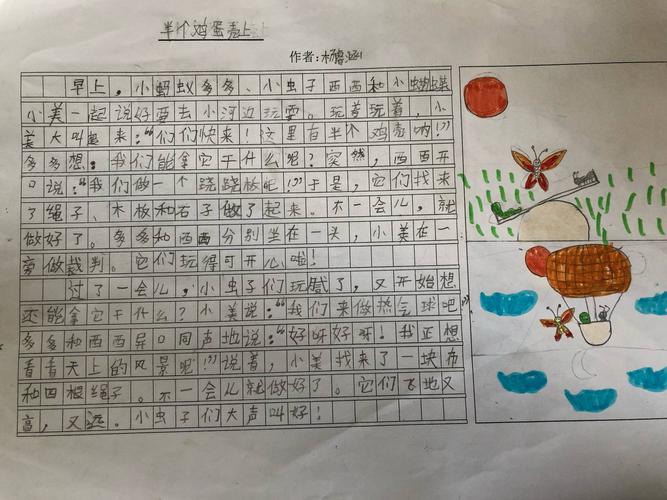 半个鸡蛋壳上
作者:杨
早上，小蚂蚁多多、小虫子西西和小蝴蝶
小美一起说好要去小河边玩耍。玩着玩着，小
美大叫起来："们们快来！这里有半个鸡壳呐！"
多多想：我们能拿它干什么呢？突然，西西开
口说："我们做一个跷跷板吧！"于是，它们找来
了绳子、木板和石子做了起来。不一会儿，就
做好了。多多和西西分别坐在一头，小美在一
旁做裁判。它们玩得可开心啦！
过了一会儿，小虫子们玩腻了，又开始想
还能拿它干什么？小美说："我们来做热气球吧"
多多和西西异口同声地说："好呀好呀！我正想
看看天上的风景呢！"说着，小美找来了一块布
和四根绳子。不一会儿就做好了。它们飞地又
高，又远。小虫子们大声叫好！